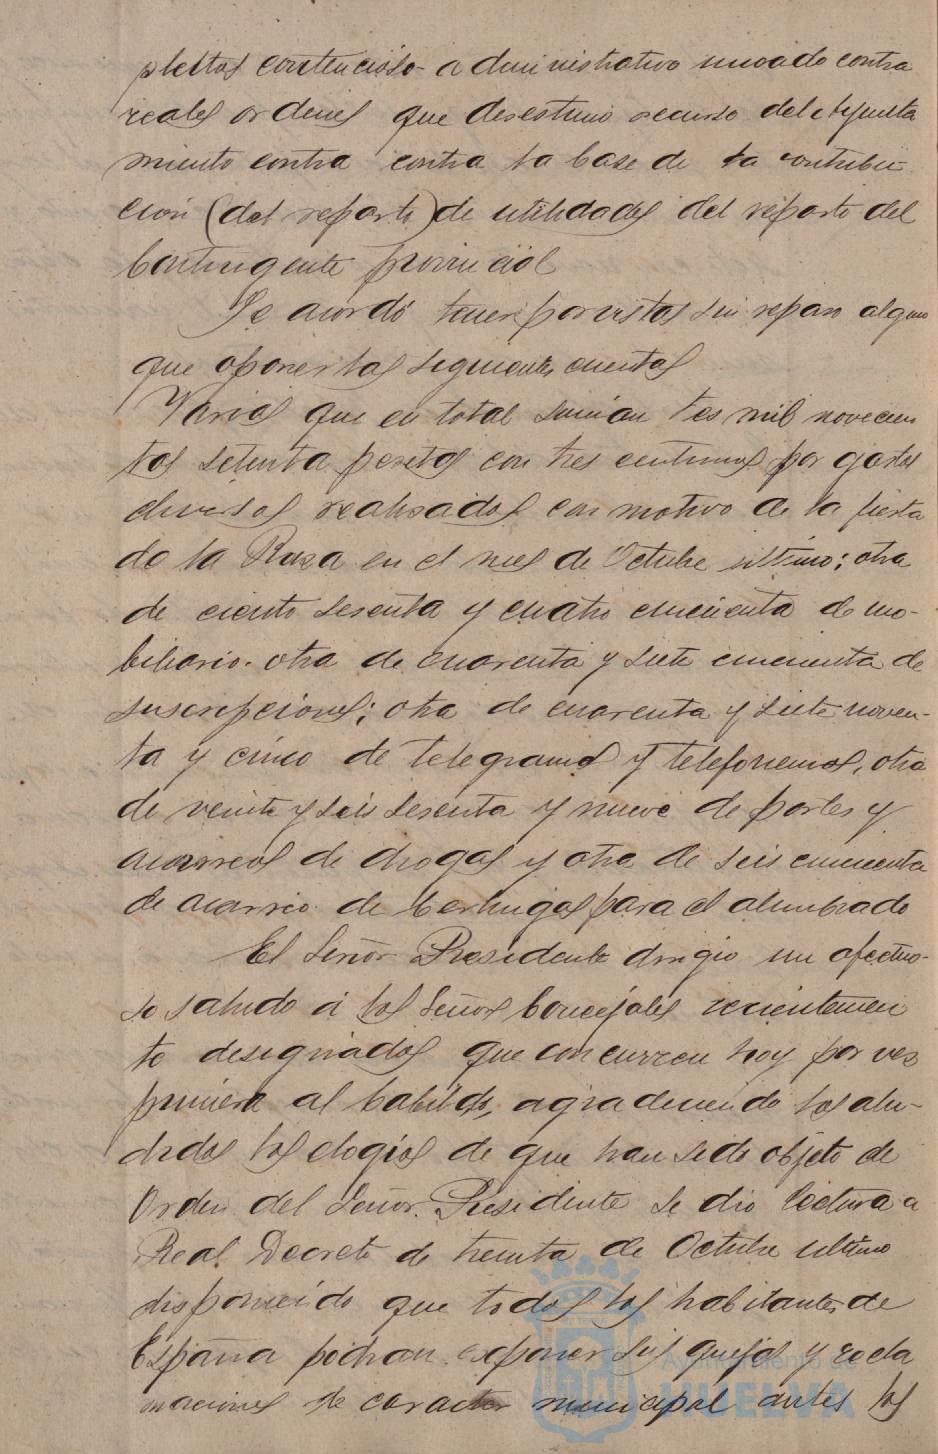 pleitos contencioso-administrativo incoado contra
reales ordenes que desestimó recurso del Ayunta
miento contra contra la base de la contribu
ción (del reparto) de utilidades del reparto del
Contingente provincial
Se acordó tener por vistas sin reparo alguno
que oponer las siguientes cuentas
Varias que en total suman tes mil novecien
tas setenta pesetas con tres centimos por gastos
diversos realisados con motivo de la fiesta
de la Raza en el mes de Octubre ultimo; otra
de ciento sesenta y cuatro cincuenta de mo-
biliario. otra de cuarenta y siete cincuenta de
suscripciones; otra de cuarenta y siete noven-
ta y cinco de telegramas y telefonemas, otra
de veinte y seis sesenta y nueve de portes y
acarreos de drogas y otra de seis cincuenta
de acarreo de Cerhugas para el alumbrado
El Señor Presidente dirigio un afectuo-
so saludo a los Señores Concejales recientemen
te designados que concurren hoy por vez
primera al Cabildo, agradeciendo los alu-
didos los elogios de que han sido objeto de
Orden del Señor Presidente se dio lectura a
Real Decreto de treinta de Octubre ultimo
disponiendo que todos los habitantes de
España podran exponer sus quejas y recla
maciones de caracter municipal antes los
Ayuntamiento de
HUELVA